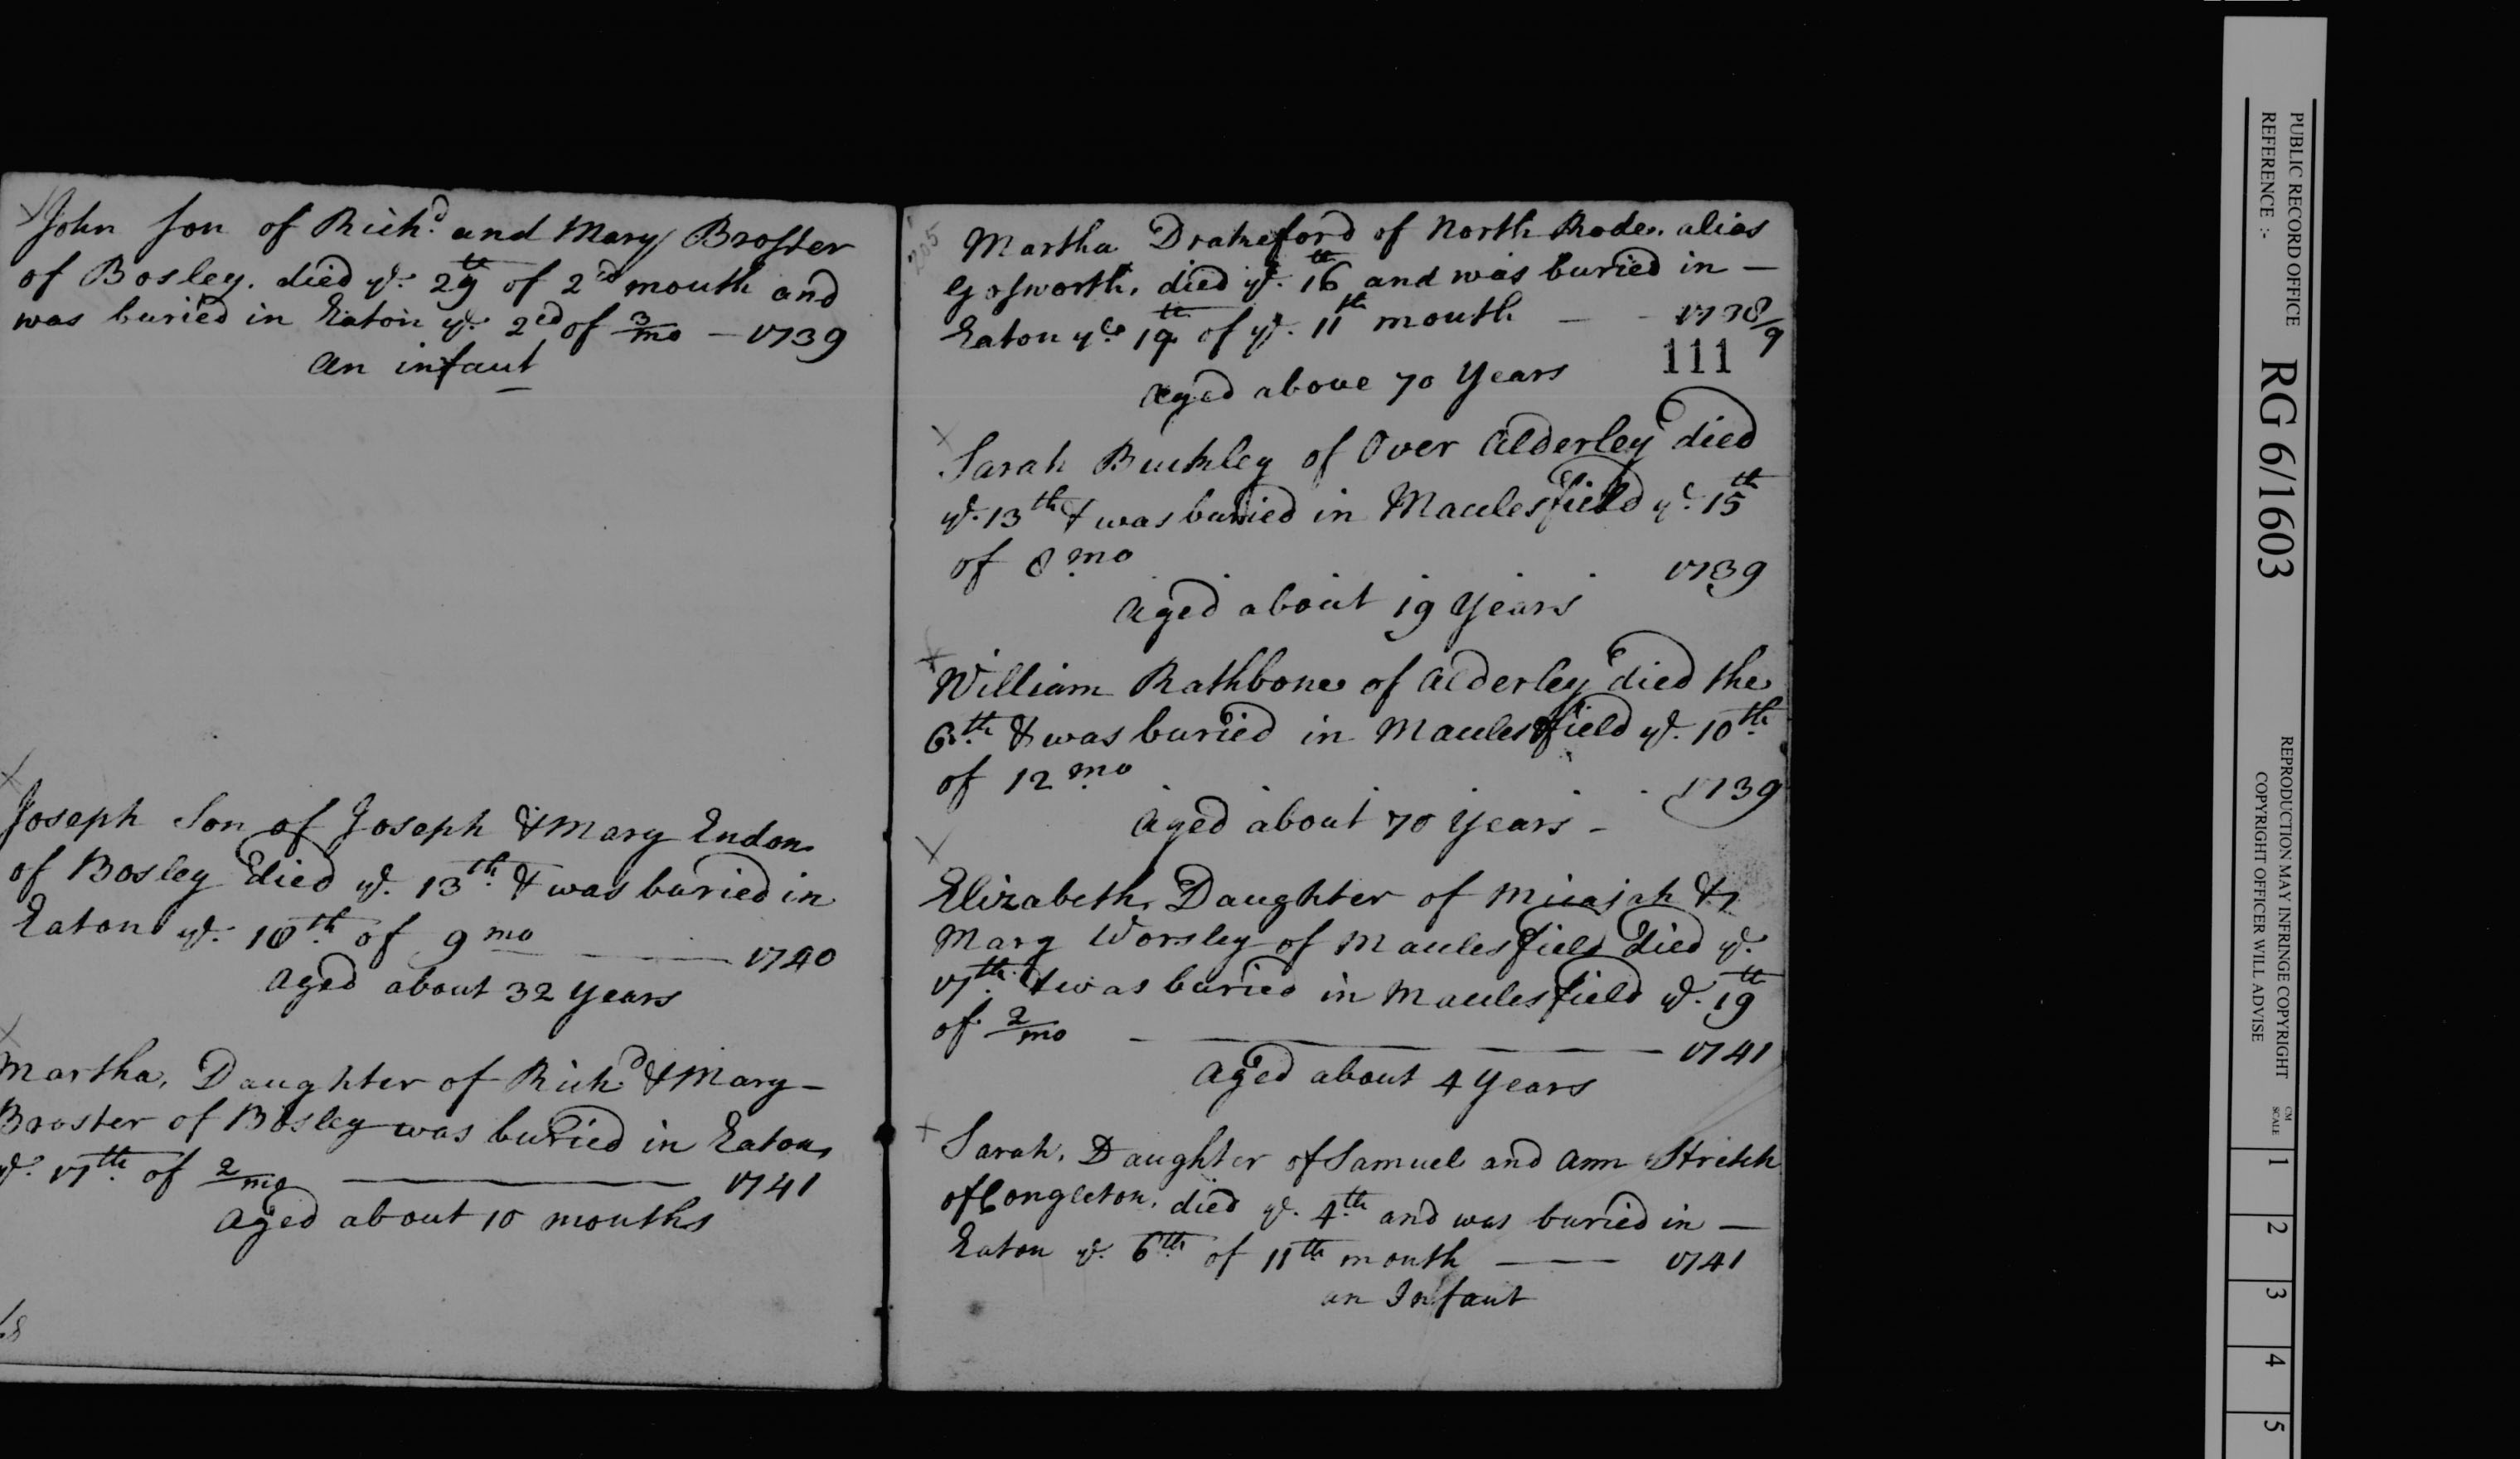 John Son of Rich.d and Mary Broster
of Bosley. died ye. 29th of 2cd mouth and
was buried in Eaton ye. 2cd of 3/mo — 1739
An infant
Joseph Son of Joseph & Mary Endon
of Bosley died ye. 13th & was buried in
Eaton ye. 18th of 9 mo — 1740
Aged about 32 Years
Martha, Daughter of Rich.d & Mary —
Broster of Bosley was buried in Eaton
ye. 17th of 2/mo — 1741
Aged about 10 months
205
Martha Drakeford of North Rode. alias
Gosworth, died ye. 16th and was buried in —
Eaton ye 19th of ye. 11th month — - 1738/9
111
Aged above 70 Years
Sarah Buckley of Over Alderley died
ye. 13th & was buried in Macclesfield ye. 15th
of 8 mo 1739
Aged about 19 Years
William Rathbone of Alderley died the
6th & was buried in Macclesfield ye. 10th
of 12 mo 1739
Aged about 70 Years -
Elizabeth, Daughter of Micajah &
Mary Worsley of Macclesfield died ye.
17th & was buried in Macclesfield ye. 19th
of 2/mo — 1741
Aged about 4 Years
Sarah, Daughter of Samuel and Ann Stretch
of Congleton, died ye. 4th and was buried in —
Eaton ye. 6th of 11th month — 1741
an Infant
PUBLIC RECORD OFFICE
REFERENCE :-
RG 6/1603
REPRODUCTION MAY INFRINGE COPYRIGHT
COPYRIGHT OFFICER WILL ADVISE
CM
SCALE
1
2
3
4
5